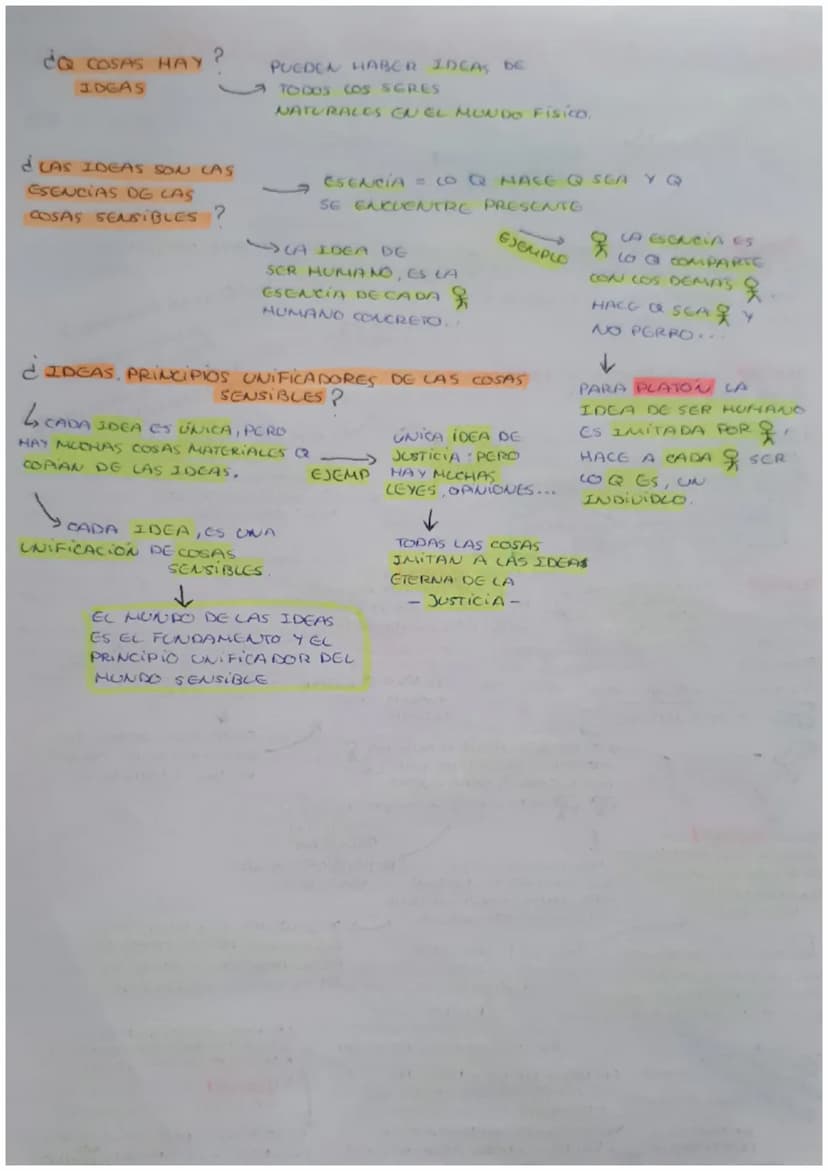 ¿Q COSAS HAY ?
IDEAS
PUEDEN HABER IDEAS DE
TODOS LOS SERES
NATURALES EN EL MUNDO FÍSICO.
¿LAS IDEAS SON LAS
ESENCIAS DE LAS
COSAS SENSIBLES ?
ESENCIA = LO Q HACE Q SEA Y Q
SE ENCUENTRE PRESENTE
LA IDEA DE
SER HUMANO, ES LA
ESENCIA DE CADA
HUMANO CONCRETO...
EJEMPLO
LA ESENCIA ES
LO Q COMPARTE
CON LOS DEMAS
HACE Q SEA Y
NO PERRO...
PARA PLATÓN LA
IDEA DE SER HUMANO
ES IMITADA POR ,
HACE A CADA SER
LO Q ES, UN
INDIVIDUO.
¿ IDEAS, PRINCIPIOS UNIFICADORES DE LAS COSAS
SENSIBLES ?
CADA IDEA ES ÚNICA, PERO
HAY MUCHAS COSAS MATERIALES Q
COPIAN DE LAS IDEAS.
EJEMP
ÚNICA IDEA DE
JUSTICIA : PERO
HAY MUCHAS
LEYES, OPINIONES...
TODAS LAS COSAS
IMITAN A LAS IDEAS
ETERNA DE LA
- JUSTICIA -
CADA IDEA, ES UNA
UNIFICACIÓN DE COSAS
SENSIBLES.
EL MUNDO DE LAS IDEAS
ES EL FUNDAMENTO Y EL
PRINCIPIO UNIFICADOR DEL
MUNDO SENSIBLE